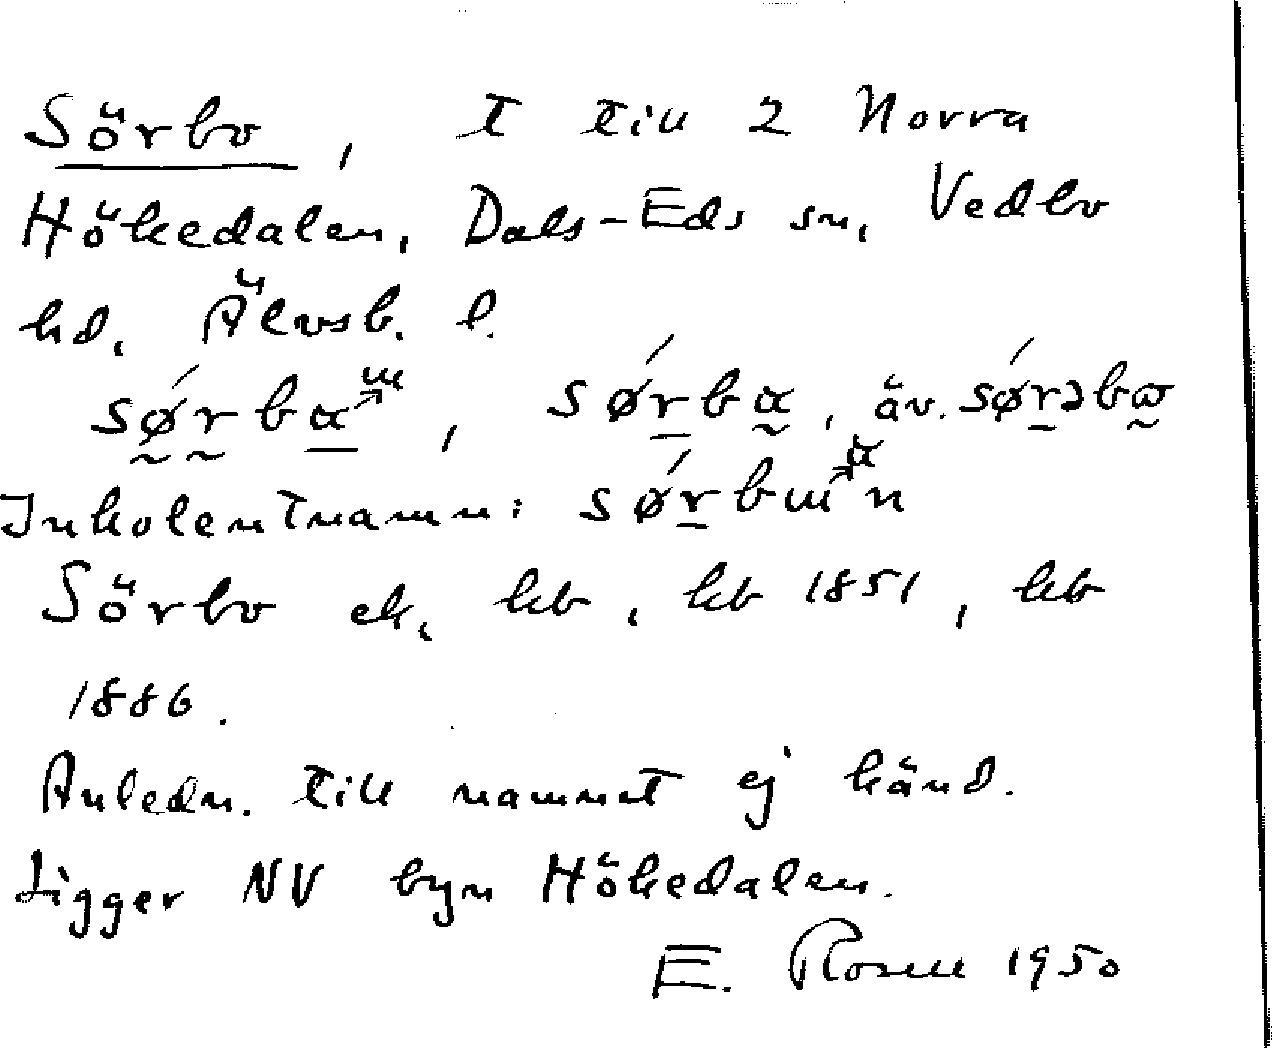 Sörbo, T till 2 Norra
Hökedalen, Dals-Eds sn, Vedbo
hd, Älvsb. l.
sǿrbɑ, sǿrbɑ, äv. sǿrəbɷ
Inkolentnamn: sǿrbɯn
Sörbo ek, kb, kb 1851, kb
1886.
Anledn. till namnet ej känd.
Ligger NV byn Hökedalen.
E. Rosell 1950